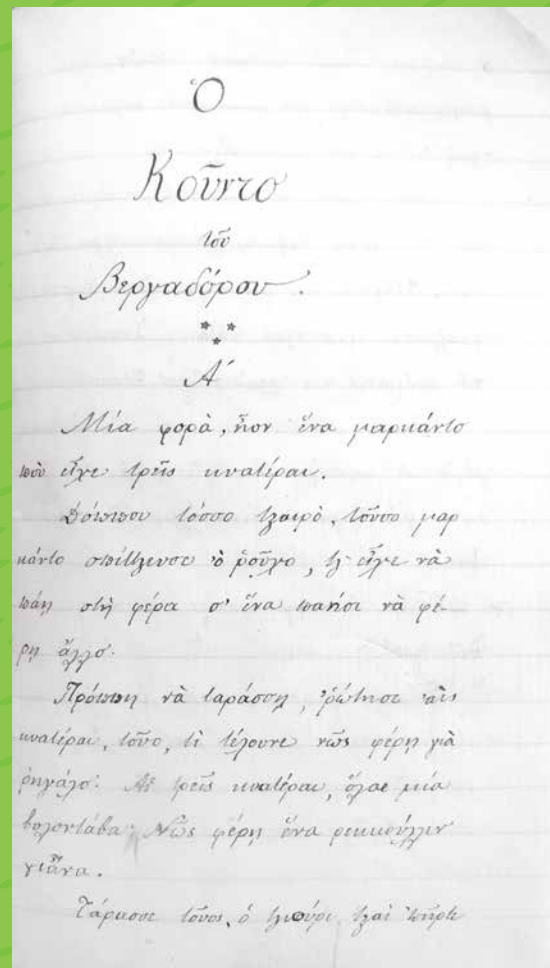 Ὁ
Κοῦντο
τοῦ
Βεργαδόρου.
* * *
Α΄
Μία φορὰ, ἦον ἕνα μαρκάντο
ποὺ εἶχε τρεῖς κυατέραι.
Δόππου τόσσο τζαιρὸ, τοῦσο μαρ
κάντο σπίττζευσε ὁ ῥοῦχο, τζ' εἶχε νὰ
πάῃ στὴ φέρα σ' ἕνα παήσι νὰ φέ-
ρῃ ἄλλο.
Πρόππη νὰ ταράσσῃ, ῥώτησε 'αὶς
κυατέραι, τοῦνο, τὶ τέλουνε νῶς φέρῃ γιὰ
ῥηγάλο. Αἱ τρεῖς κυατέραι, ὅλαε μία
βολοντάβα: Νῶς φέρῃ ἕνα ρεκκούλλιν
γιᾶνα.
Τάρασσε τοῦνος, ὁ τζιούρι τζαὶ